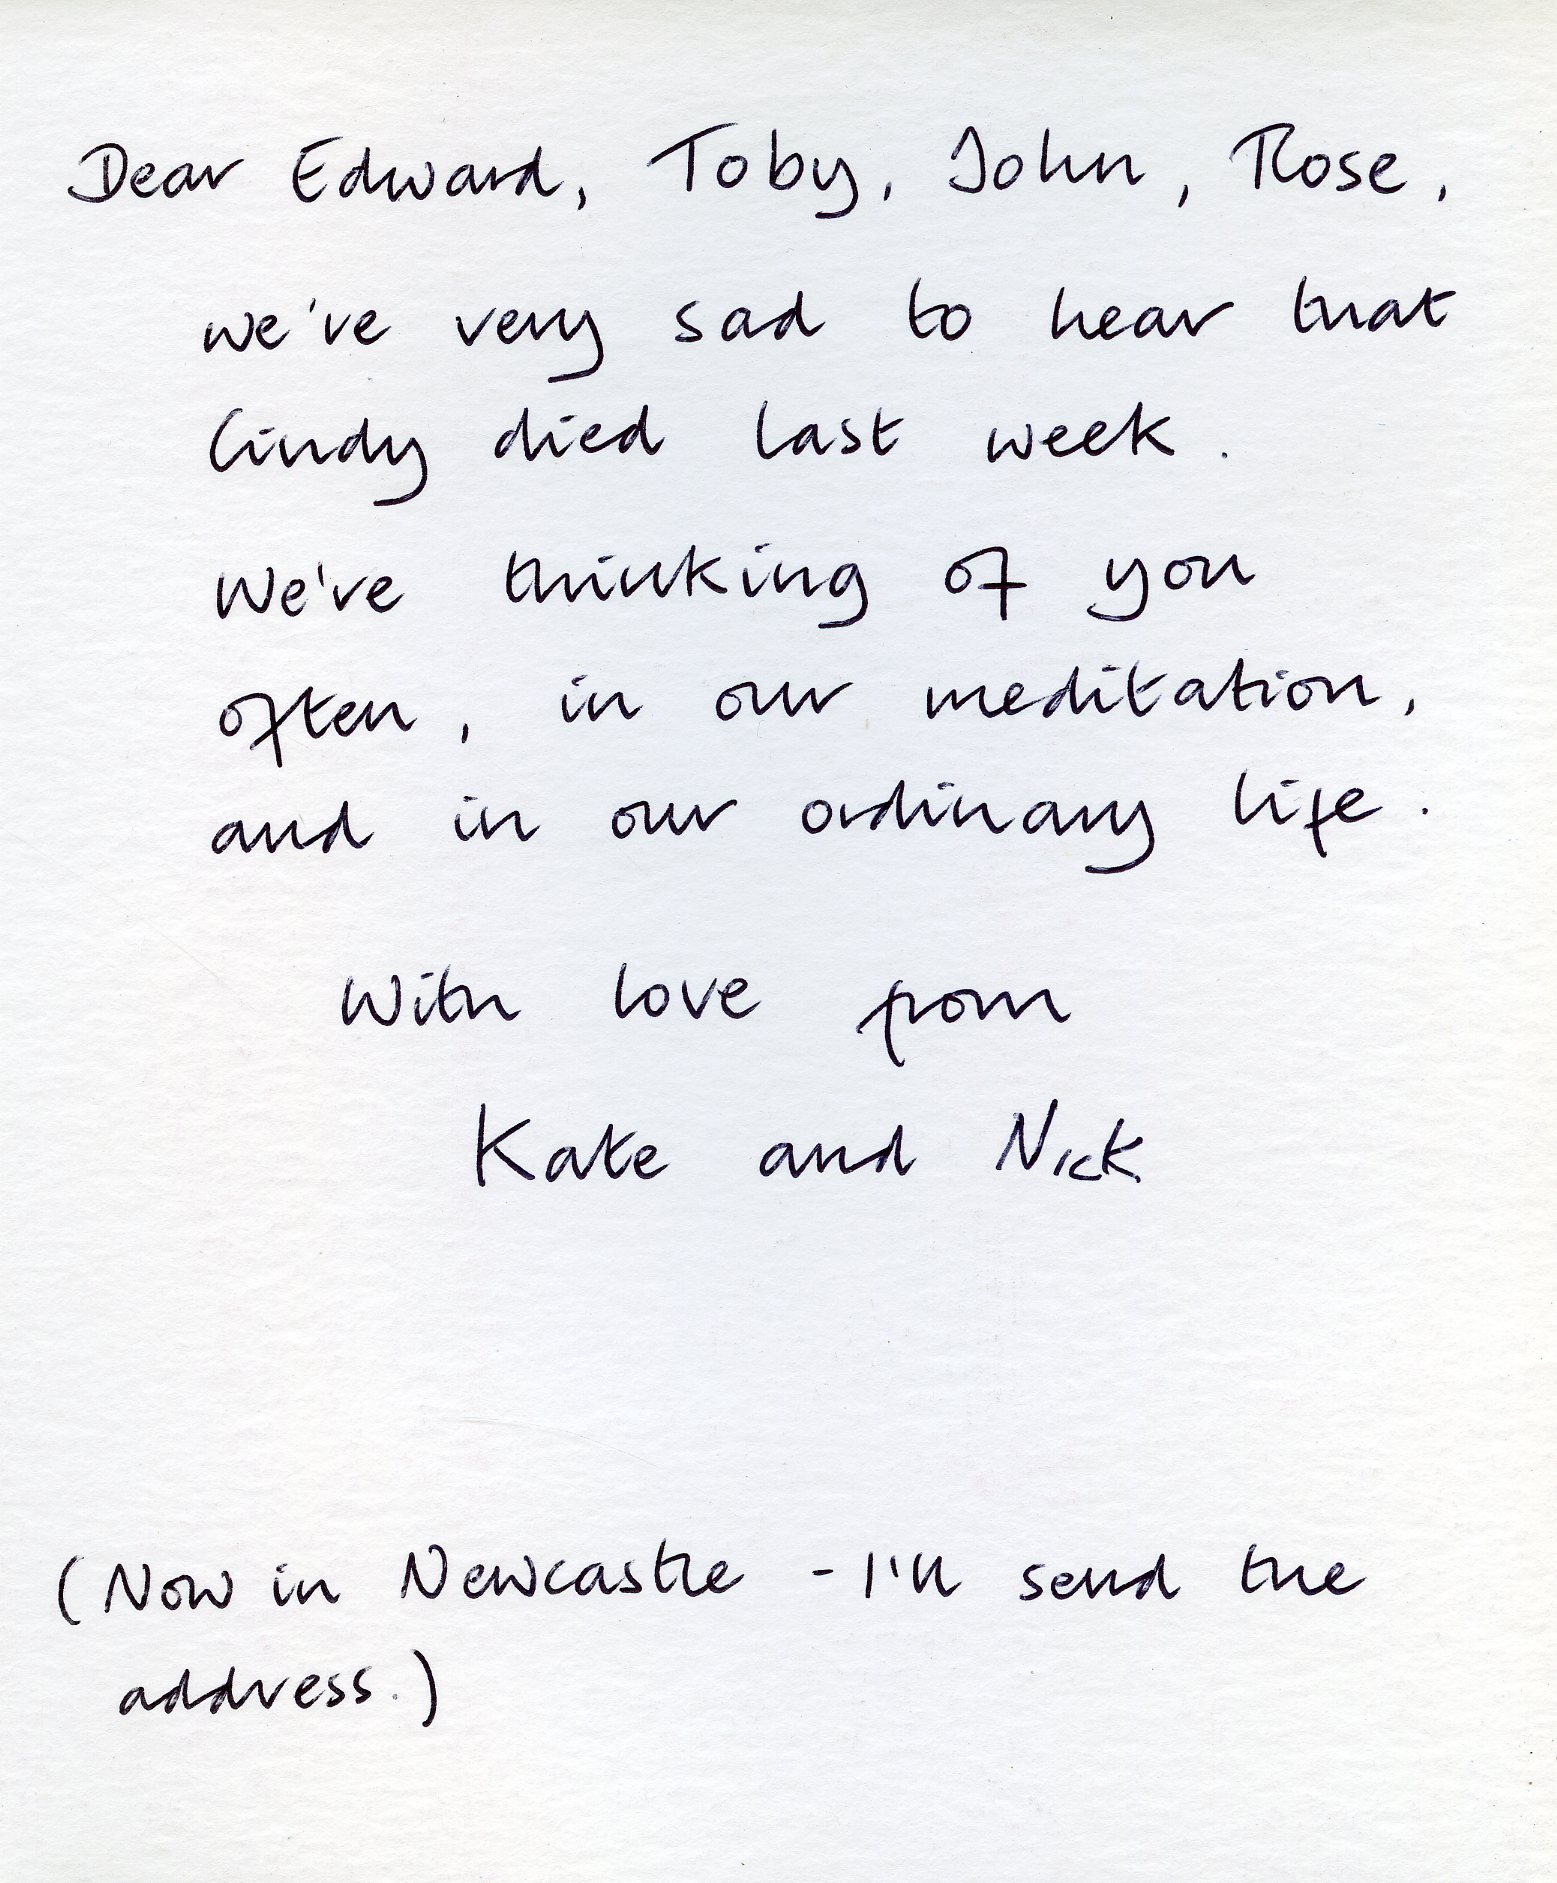 Dear Edward, Toby, John, Rose,
we're very sad to hear that
Cindy died last week.
We're thinking of you
often, in our meditation,
and in our ordinary life.
With love from
Kate and Nick
(Now in Newcastle - I'll send the
address.)